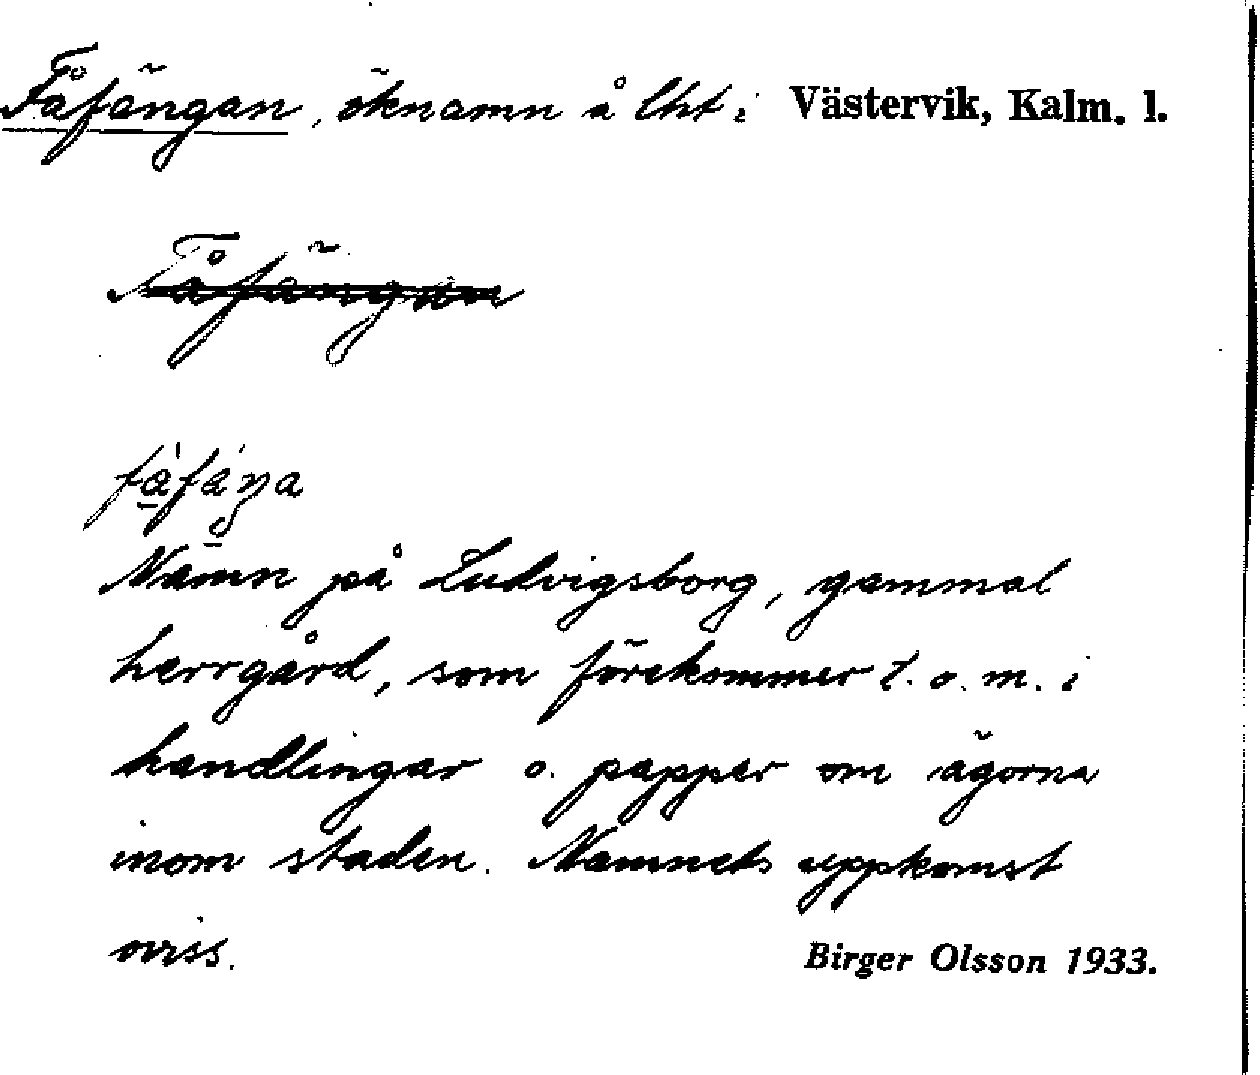 Fåfängan, öknamn å lht i Västervik, Kalm. l.
Fåfängan
Namn på Ludvigsborg, gammal
herrgård, som förekommer t.o.m. i
handlingar o. papper om ägorna
inom staden. Namnets uppkomst
oviss.
Birger Olsson 1933.